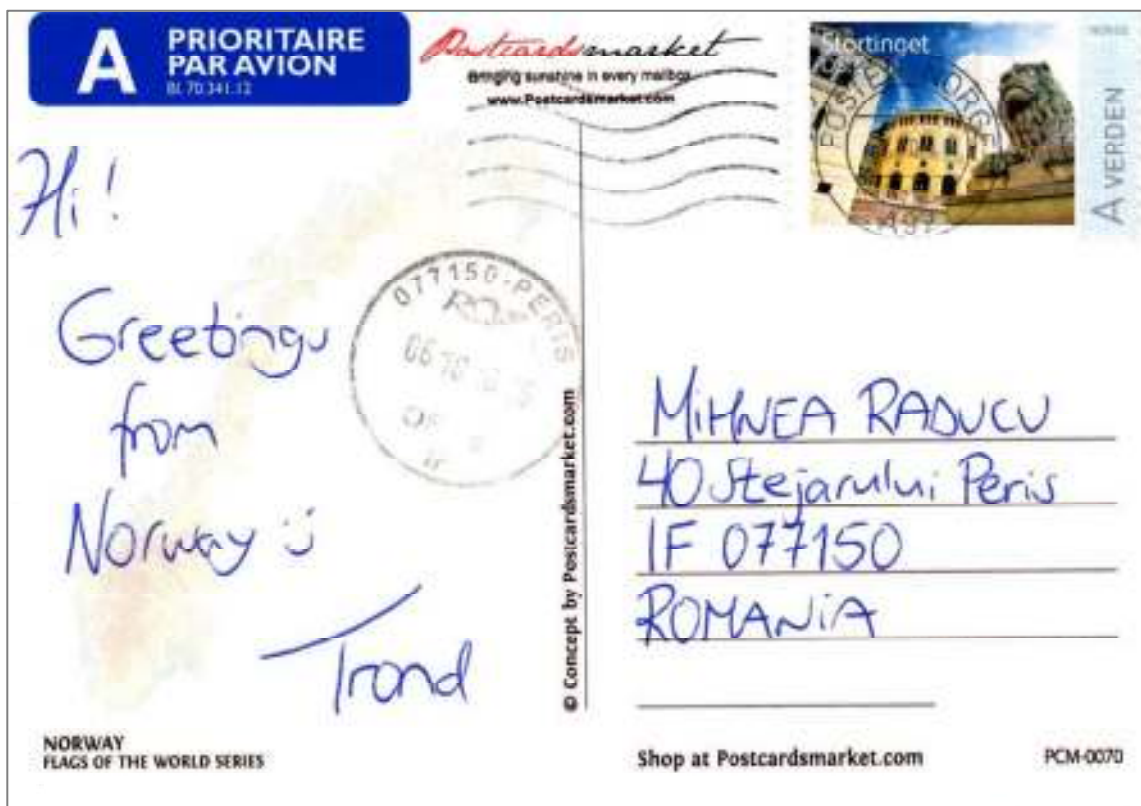 A PRIORITAIRE
PAR AVION
Bl. 70.341.12
Postcardsmarket
Bringing sunshine in every mailbox
www.Postcardsmarket.com
Stortinget
POSTEN NORGE
NORGE
A VERDEN
Hi!
Greetings
from
Norway :)
Trond
077150-PERIS
06 10
IF
© Concept by Postcardsmarket.com
MIHNEA RADUCU
40 Stejarului Peris
IF 077150
ROMANiA
NORWAY
FLAGS OF THE WORLD SERIES
Shop at Postcardsmarket.com
PCM-0070